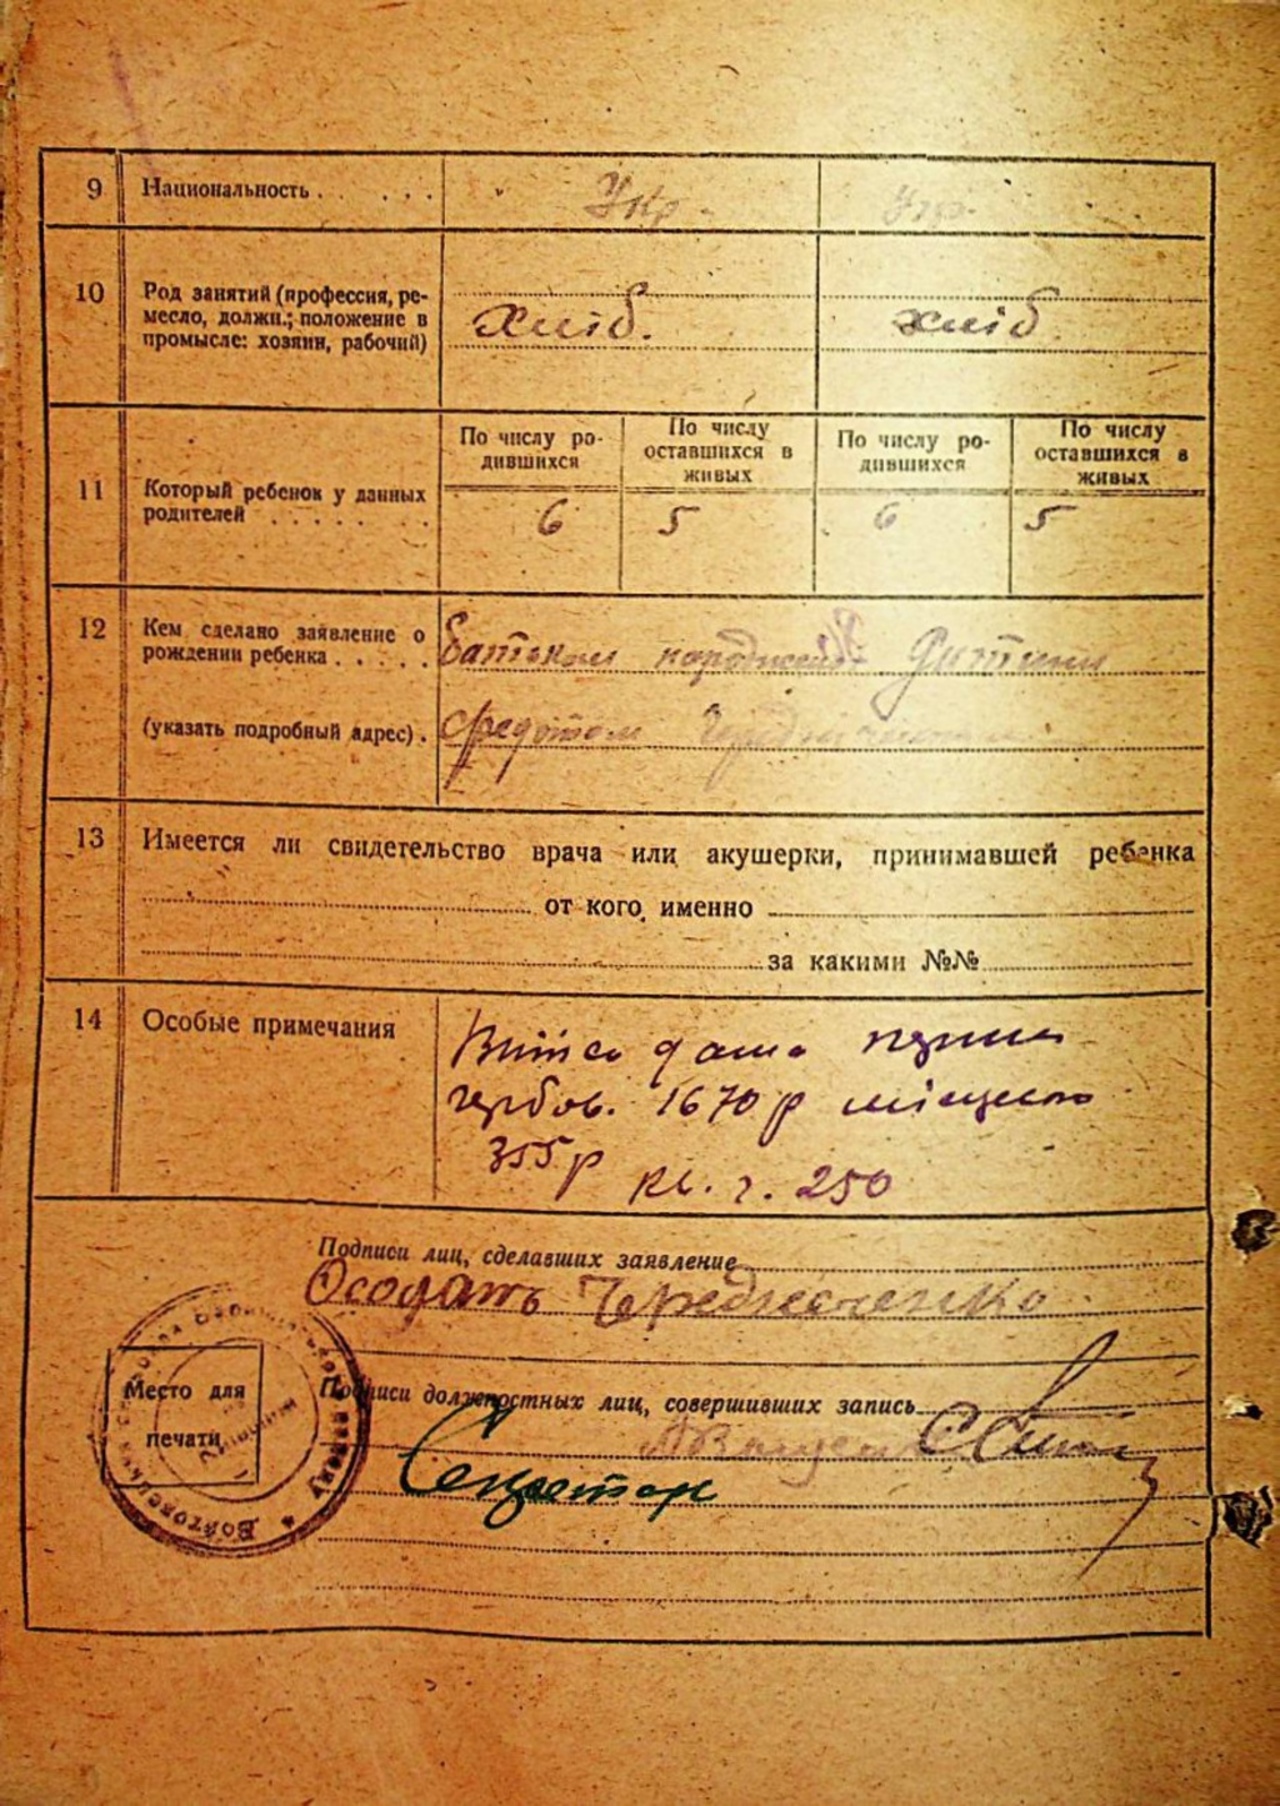 9 Национальность . . . . . Укр. Укр.
10 Род занятий (профессия, ре-
месло, должн.; положение в
промысле: хозяин, рабочий)
хліб. хліб
11 Который ребенок у данных
родителей . . . . . . .
По числу ро-
дившихся
По числу
оставшихся в
живых
По числу ро-
дившихся
По числу
оставшихся в
живых
6 5 6 5
12 Кем сделано заявление о
рождении ребенка . . . . .
Батьком народженої дитини
(указать подробный адрес) .
Федотом
13 Имеется ли свидетельство врача или акушерки, принимавшей ребенка
от кого именно
за какими №№
14 Особые примечания
Витяг дано
гербов. 1670 р місцево
355 р кв. 2. 250
Подписи лиц, сделавших заявление
Чередниченко
Подписи должностных лиц, совершивших запись
Секретар
Место для
печати